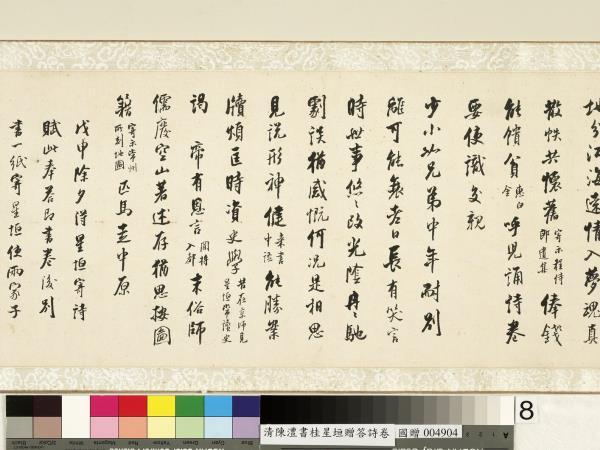 地分江海遠情入夢魂真
散帙共懷舊寄示程侍郎遺集俸錢
能償貧惠白金呼兒誦詩卷
要使識交親
少小如兄弟中年耐別
離可能無老日長有笑言
時世事悠々改光陰冉々馳
劇談猶感慨何況是相思
見說形神健來書中語能勝案
牘煩匡時資史學昔在京師見星垣常讀史
謁帝有恩言聞將入都末俗師
儒廢空山著述存猶思按圖
籍寄示常州所刻地圖匹馬走中原
戊申除夕得星垣寄詩
賦此奉答即書卷後別
書一紙寄星垣使兩家子
清陳澧書桂星垣贈答詩卷 國贈 004904
8
Black
White
Magenta
Red
Yellow
Green
Cyan
Blue
A